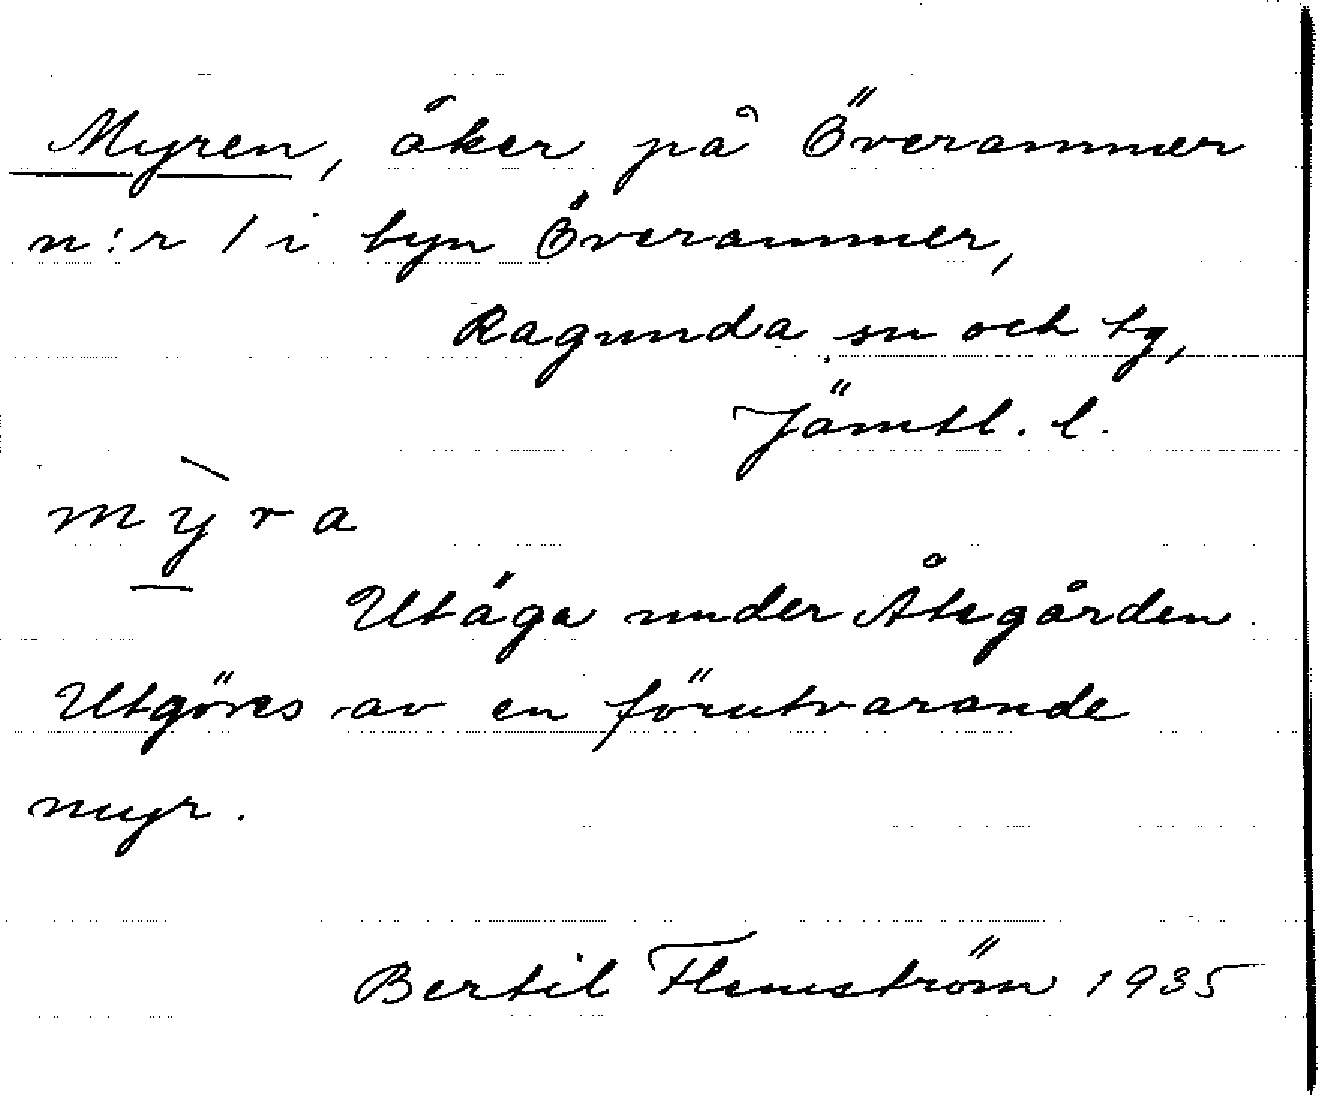 Myren, åker på Överammer
n:r 1 i byn Överammer,
Ragunda sn och tg,
Jämtl. l.
mỳra
Utäga under Åtegården.
Utgöres av en förutvarande
myr.
Bertil Flemström 1935